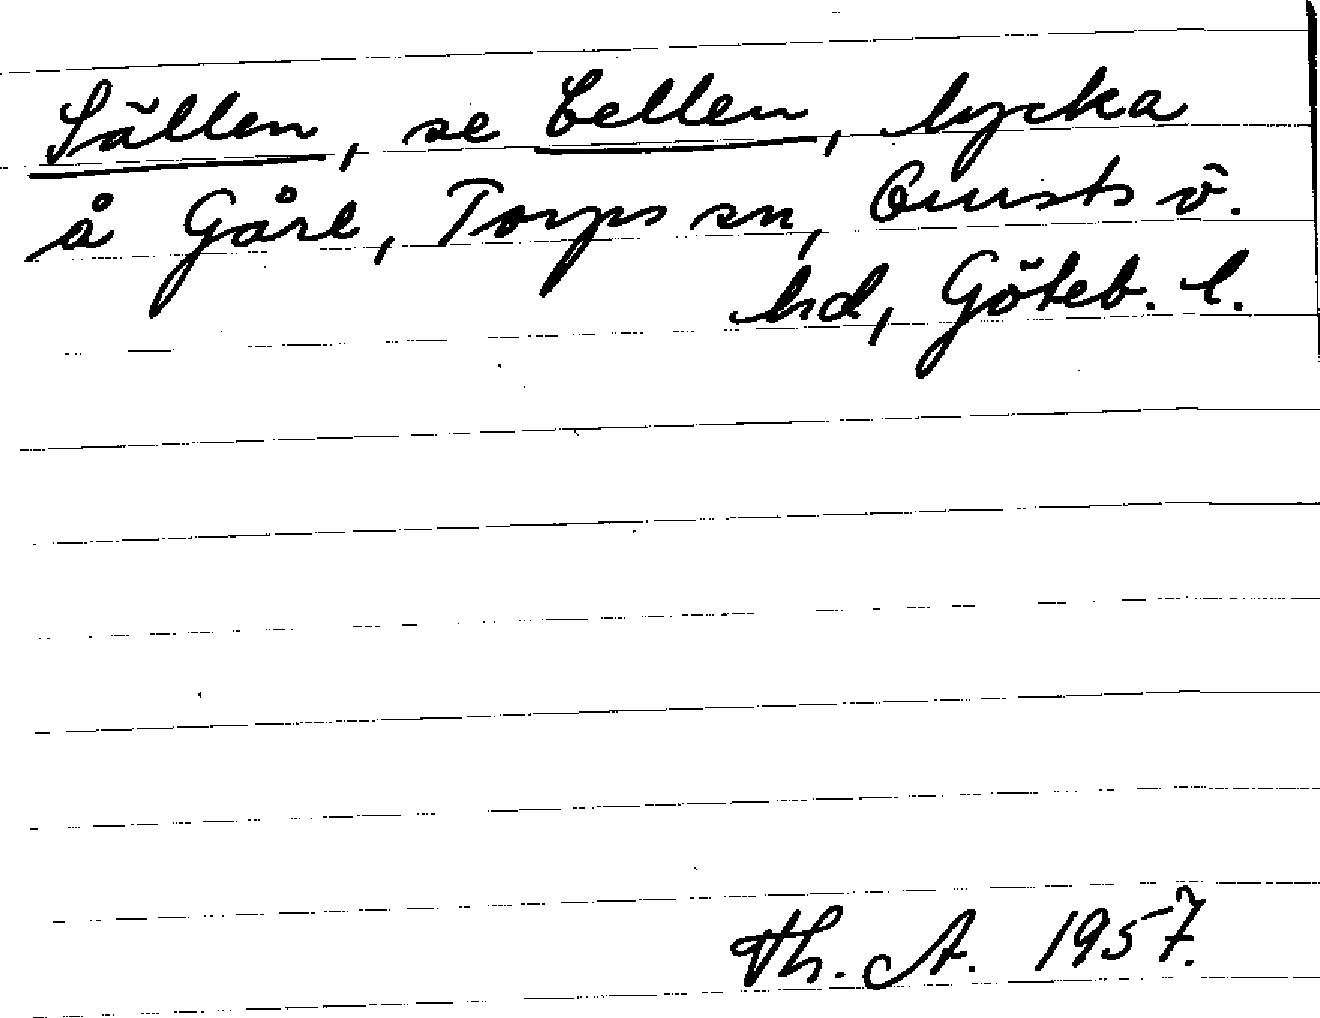 Sällen, se Cellen, lycka
å Gåre, Torps sn, Bursts ö.
hd, Göteb. l.
Th. A. 1957.